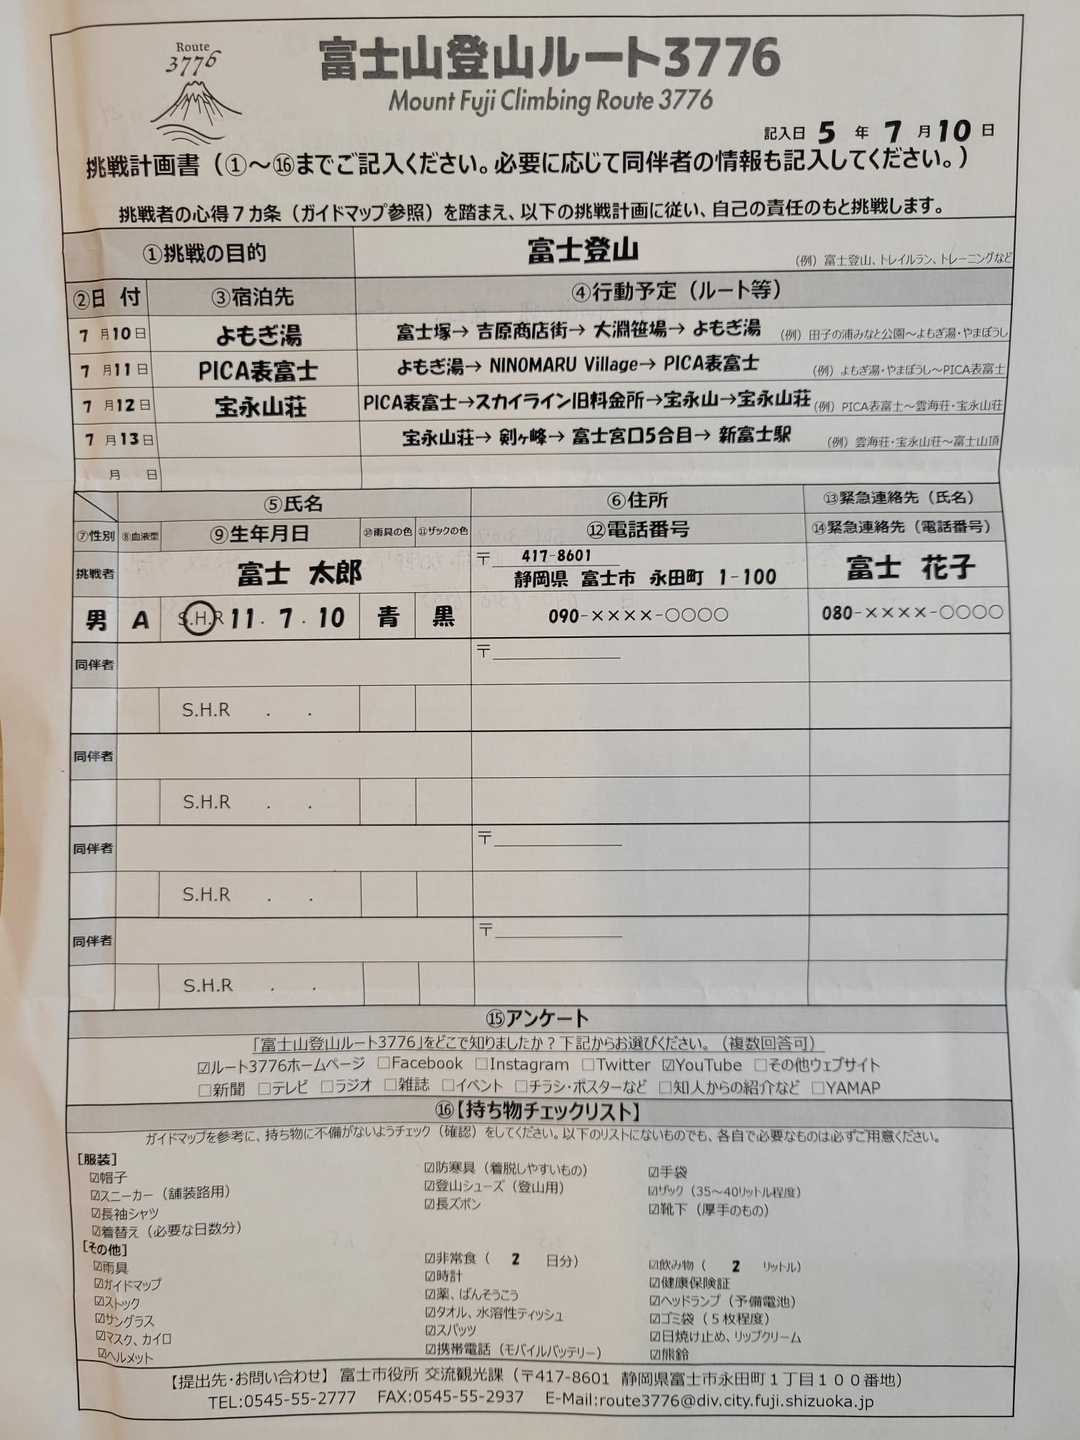 Route
3776
富士山登山ルート3776
Mount Fuji Climbing Route 3776
記入日 5 年 7 月 10 日
挑戦計画書（①～⑯までご記入ください。必要に応じて同伴者の情報も記入してください。）
挑戦者の心得７カ条（ガイドマップ参照）を踏まえ、以下の挑戦計画に従い、自己の責任のもと挑戦します。
①挑戦の目的 富士登山 （例）富士登山、トレイルラン、トレーニングなど
②日 付 ③宿泊先 ④行動予定（ルート等）
7 月10日 よもぎ湯 富士塚→ 吉原商店街→ 大淵笹場→ よもぎ湯 （例）田子の浦みなと公園～よもぎ湯・やまぼうし
7 月11日 PICA表富士 よもぎ湯→ NINOMARU Village→ PICA表富士 （例）よもぎ湯・やまぼうし～PICA表富士
7 月12日 宝永山荘 PICA表富士→スカイライン旧料金所→宝永山→宝永山荘 （例）PICA表富士～雲海荘・宝永山荘
7 月13日 宝永山荘→ 剣ヶ峰→ 富士宮口5合目→ 新富士駅 （例）雲海荘・宝永山荘～富士山頂
月 日
⑤氏名 ⑥住所 ⑬緊急連絡先（氏名）
⑦性別 ⑧血液型 ⑨生年月日 ⑩雨具の色 ⑪ザックの色 ⑫電話番号 ⑭緊急連絡先（電話番号）
挑戦者 富士 太郎 〒 417-8601 静岡県 富士市 永田町 1-100 富士 花子
男 A S.H.R 11. 7. 10 青 黒 090-××××-○○○○ 080-××××-○○○○
同伴者 〒
S.H.R . .
同伴者
S.H.R . .
同伴者 〒
S.H.R . .
同伴者 〒
S.H.R . .
⑮アンケート
「富士山登山ルート3776」をどこで知りましたか？下記からお選びください。（複数回答可）
☑ルート3776ホームページ □Facebook □Instagram □Twitter ☑YouTube □その他ウェブサイト
□新聞 □テレビ □ラジオ □雑誌 □イベント □チラシ・ポスターなど □知人からの紹介など □YAMAP
⑯【持ち物チェックリスト】
ガイドマップを参考に、持ち物に不備がないようチェック（確認）をしてください。以下のリストにないものでも、各自で必要なものは必ずご用意ください。
[服装]
☑帽子 ☑防寒具（着脱しやすいもの） ☑手袋
☑スニーカー（舗装路用） ☑登山シューズ（登山用） ☑ザック（35～40リットル程度）
☑長袖シャツ ☑長ズボン ☑靴下（厚手のもの）
☑着替え（必要な日数分）
[その他]
☑雨具 ☑非常食（ 2 日分） ☑飲み物（ 2 リットル）
☑ガイドマップ ☑時計 ☑健康保険証
☑ストック ☑薬、ばんそうこう ☑ヘッドランプ（予備電池）
☑サングラス ☑タオル、水溶性ティッシュ ☑ゴミ袋（５枚程度）
☑マスク、カイロ ☑スパッツ ☑日焼け止め、リップクリーム
☑ヘルメット ☑携帯電話（モバイルバッテリー） ☑熊鈴
【提出先・お問い合わせ】富士市役所 交流観光課（〒417-8601 静岡県富士市永田町１丁目１００番地）
TEL:0545-55-2777 FAX:0545-55-2937 E-Mail:route3776@div.city.fuji.shizuoka.jp